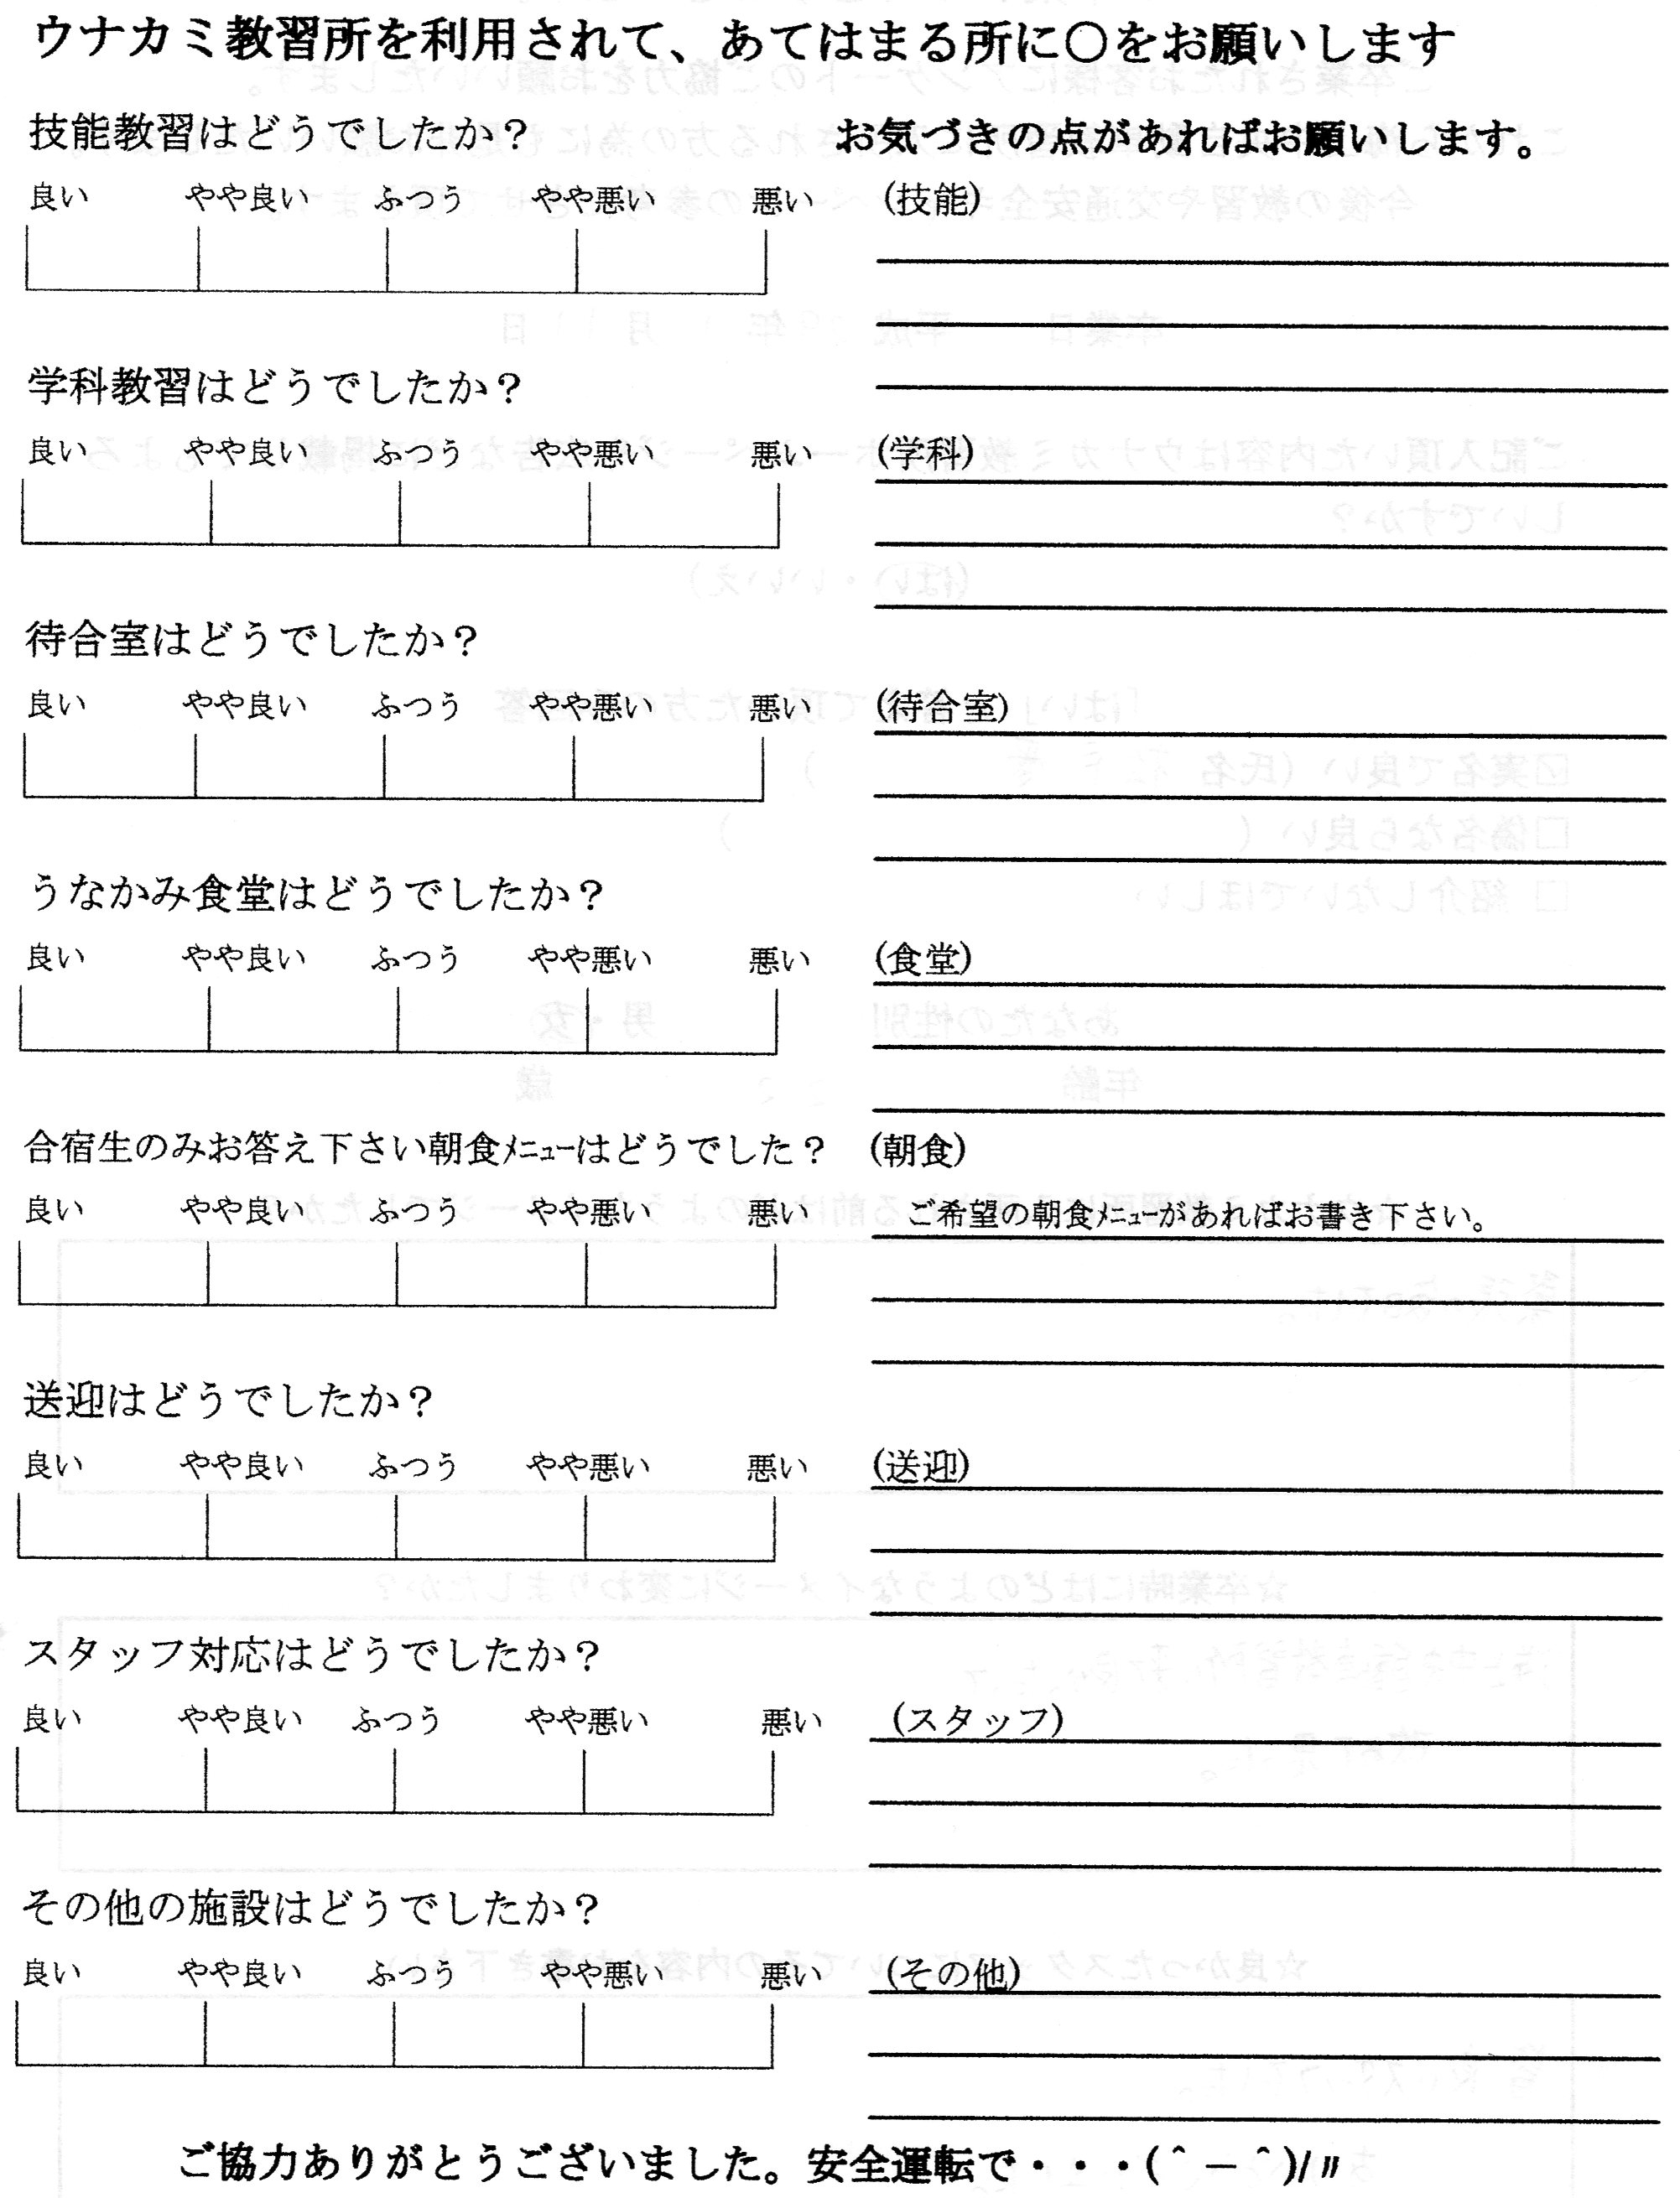 ウナカミ教習所を利用されて、あてはまる所に〇をお願いします
技能教習はどうでしたか？
お気づきの点があればお願いします。
良い やや良い ふつう やや悪い 悪い
(技能)
学科教習はどうでしたか？
良い やや良い ふつう やや悪い 悪い
(学科)
待合室はどうでしたか？
良い やや良い ふつう やや悪い 悪い
(待合室)
うなかみ食堂はどうでしたか？
良い やや良い ふつう やや悪い 悪い
(食堂)
合宿生のみお答え下さい朝食ﾒﾆｭｰはどうでした？
(朝食)
良い やや良い ふつう やや悪い 悪い
ご希望の朝食ﾒﾆｭｰがあればお書き下さい。
送迎はどうでしたか？
良い やや良い ふつう やや悪い 悪い
(送迎)
スタッフ対応はどうでしたか？
良い やや良い ふつう やや悪い 悪い
(スタッフ)
その他の施設はどうでしたか？
良い やや良い ふつう やや悪い 悪い
(その他)
ご協力ありがとうございました。安全運転で・・・(＾－＾)/〃